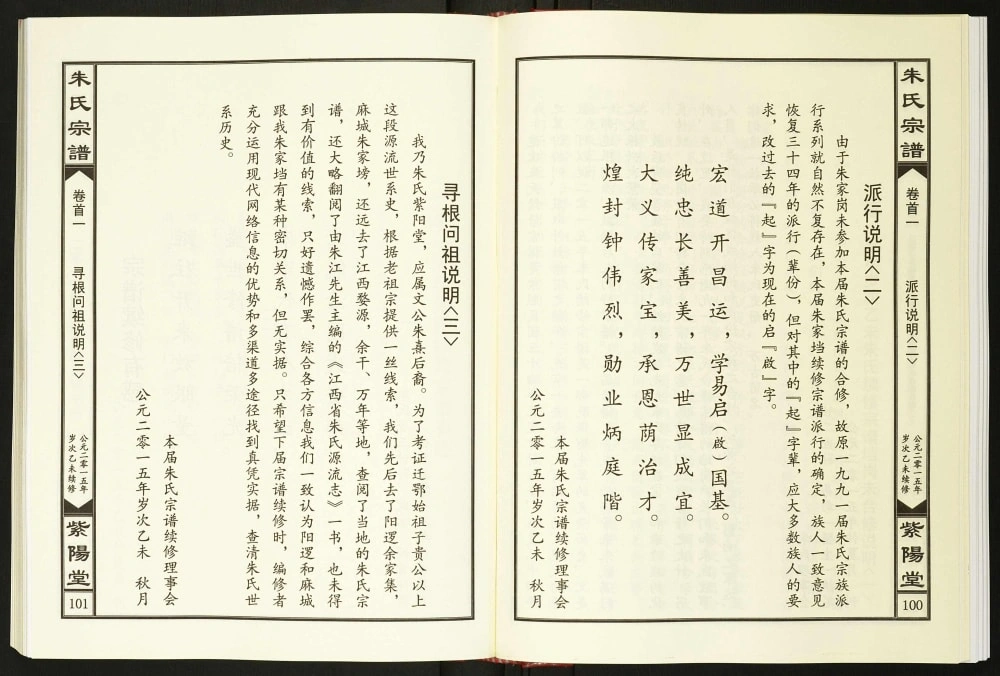 朱氏宗譜
卷首一
派行说明〈二〉
公元二零一五年
岁次乙未续修
紫陽堂
100
派行说明〈二〉
由于朱家岗未参加本届朱氏宗谱的合修，故原一九九一届朱氏宗族派
行系列就自然不复存在，本届朱家垱续修宗谱派行的确定，族人一致意见
恢复三十四年的派行（辈份），但对其中的『起』字辈，应大多数族人的要
求，改过去的『起』字为现在的启『啟』字。
宏道开昌运，学易启（啟）国基。
纯忠长善美，万世显成宜。
大义传家宝，承恩荫治才。
煌封钟伟烈，勋业炳庭階。
本届朱氏宗谱续修理事会
公元二零一五年岁次乙未　秋月
寻根问祖说明〈三〉
我乃朱氏紫阳堂，应属文公朱熹后裔。为了考证迁鄂始祖子贵公以上
这段源流世系史，根据老祖宗提供一丝线索，我们先后去了阳逻余家集，
麻城朱家塝，还远去了江西婺源，余干、万年等地，查阅了当地的朱氏宗
谱，还大略翻阅了由朱江先生主编的《江西省朱氏源流志》一书，也未得
到有价值的线索，只好遗憾作罢，综合各方信息我们一致认为阳逻和麻城
跟我朱家垱有某种密切关系，但无实据。只希望下届宗谱续修时，编修者
充分运用现代网络信息的优势和多渠道多途径找到真凭实据，查清朱氏世
系历史。
本届朱氏宗谱续修理事会
公元二零一五年岁次乙未　秋月
朱氏宗譜
卷首一
寻根问祖说明〈三〉
公元二零一五年
岁次乙未续修
紫陽堂
101